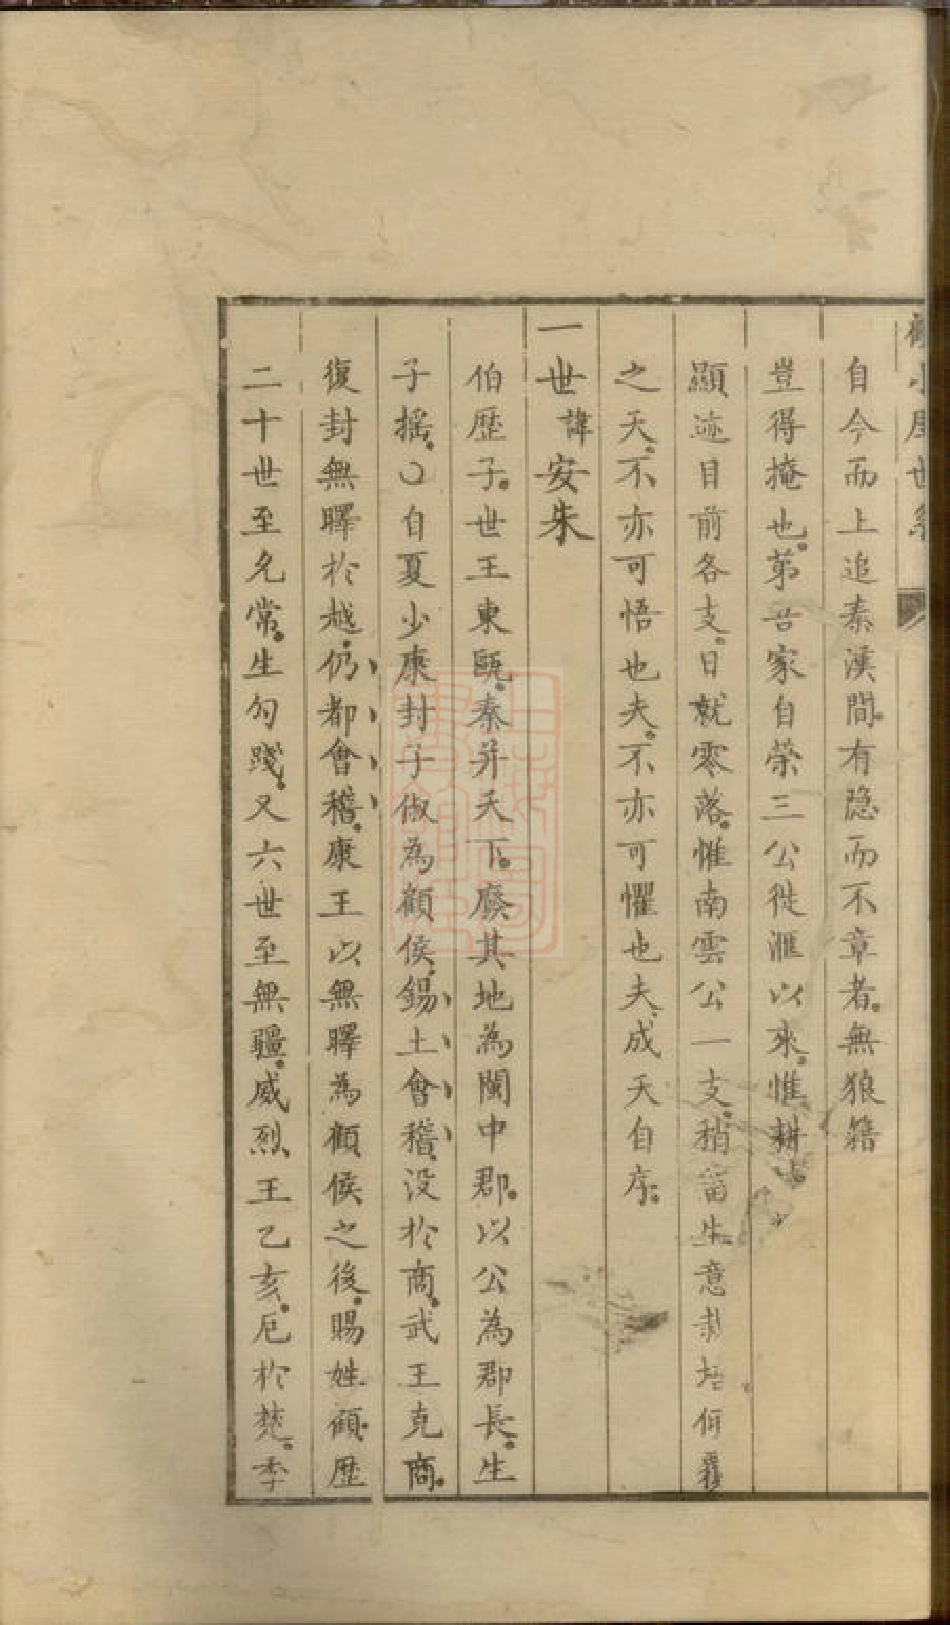 顧小厓世系
自今而上追秦漢間有隐而不章者無狼籍
豈得掩也第吾家自榮三公徙滙以來惟耕
顯迹目前各支日就零落惟南雲公一支稍畱生意栽培傾覆
之天不亦可悟也夫不亦可懼也夫成天自序
一世諱安朱
伯歷子世王東甌秦并天下廢其地為閩中郡以公為郡長生
子搖〇自夏少康封子倣為顧侯錫土會稽没於商武王克商
復封無睪於越仍都會稽康王以無睪為顧侯之後賜姓顧歴
二十世至允常生勾踐又六世至無疆威烈王乙亥厄於楚季